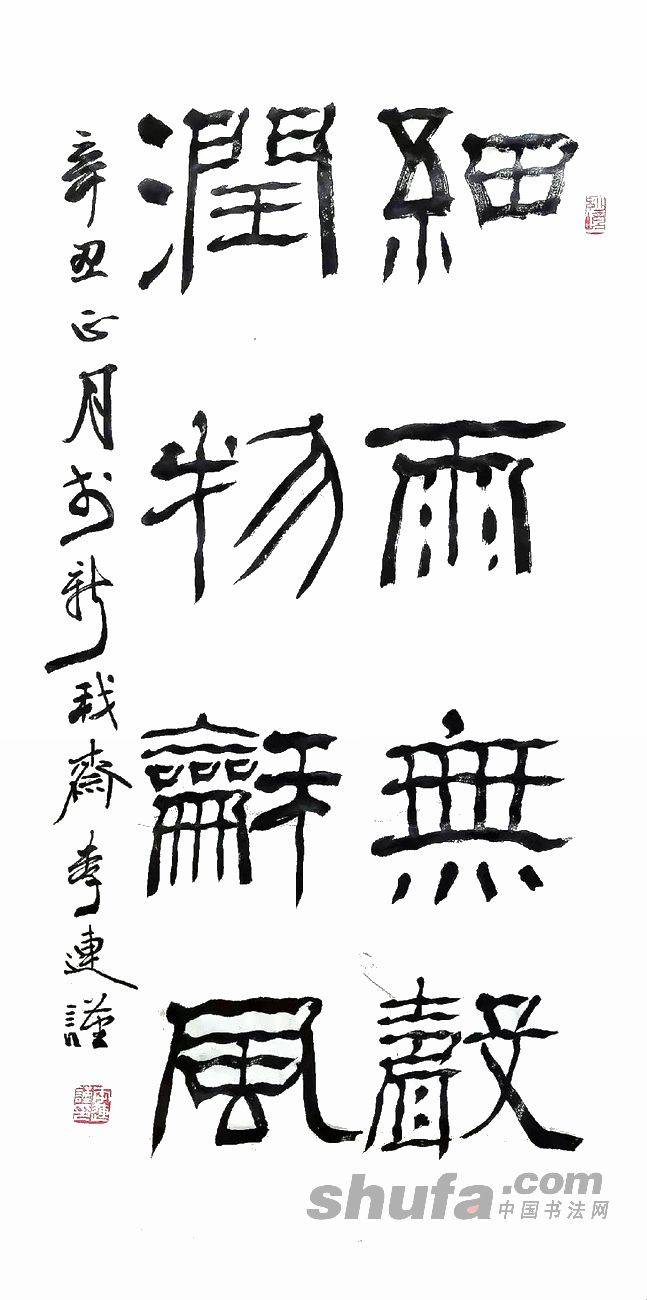 細雨無聲
潤物龢風
辛丑正月於新我齋李連謹
shufa.com
中国书法网